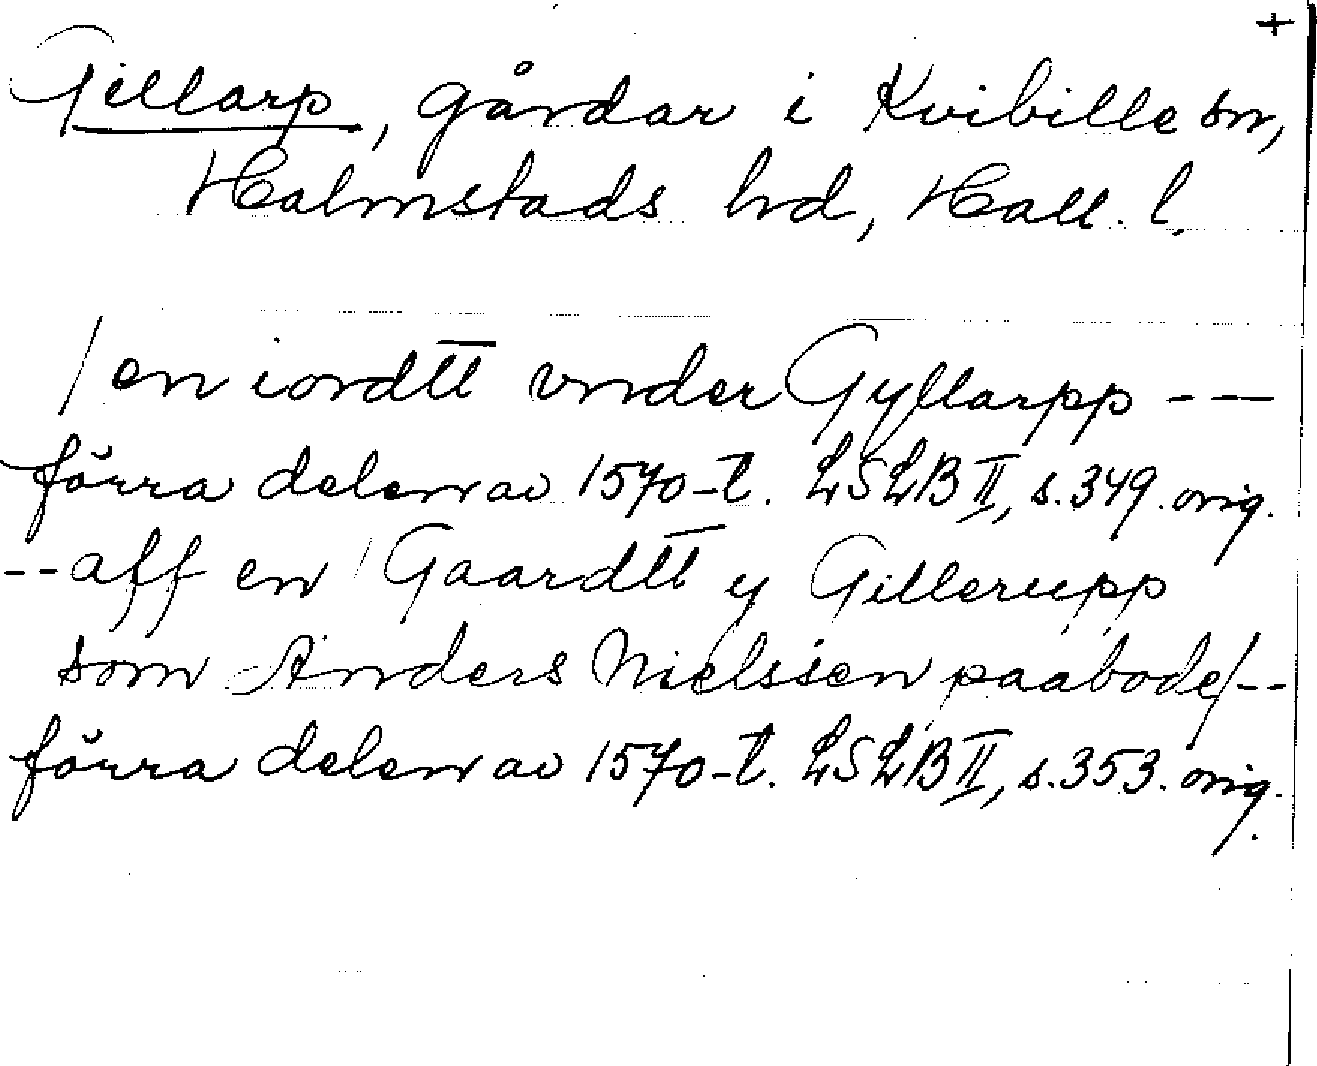 +
Gillarp, gårdar i Kvibille sn,
Halmstads hd, Hall. l.
/ en iordtt vnder Gyllarpp ---
förra delen av 1570-t. LSLB II, s. 349. orig.
-- aff en Gaardtt y Gillerupp
som Anders Nielssen paabode/--
förra delen av 1570-t. LSLB II, s. 353. orig.